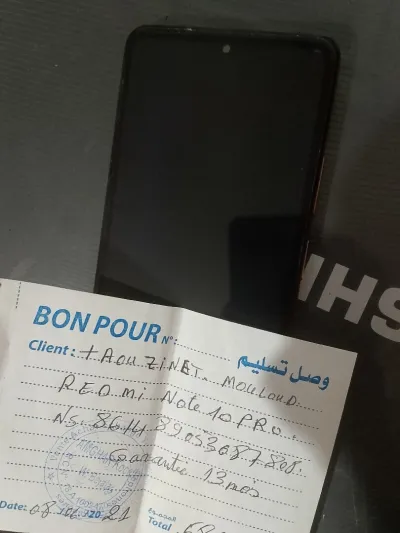 HSH
BON POUR N°:
وصل تسليم
Client: TAOUZINET. MOULOUD
REDMI Note 10 PRO.
NS: 8614 89053087808.
Garantie 13 mois
Date: 08 06 2021
المجموع
Total